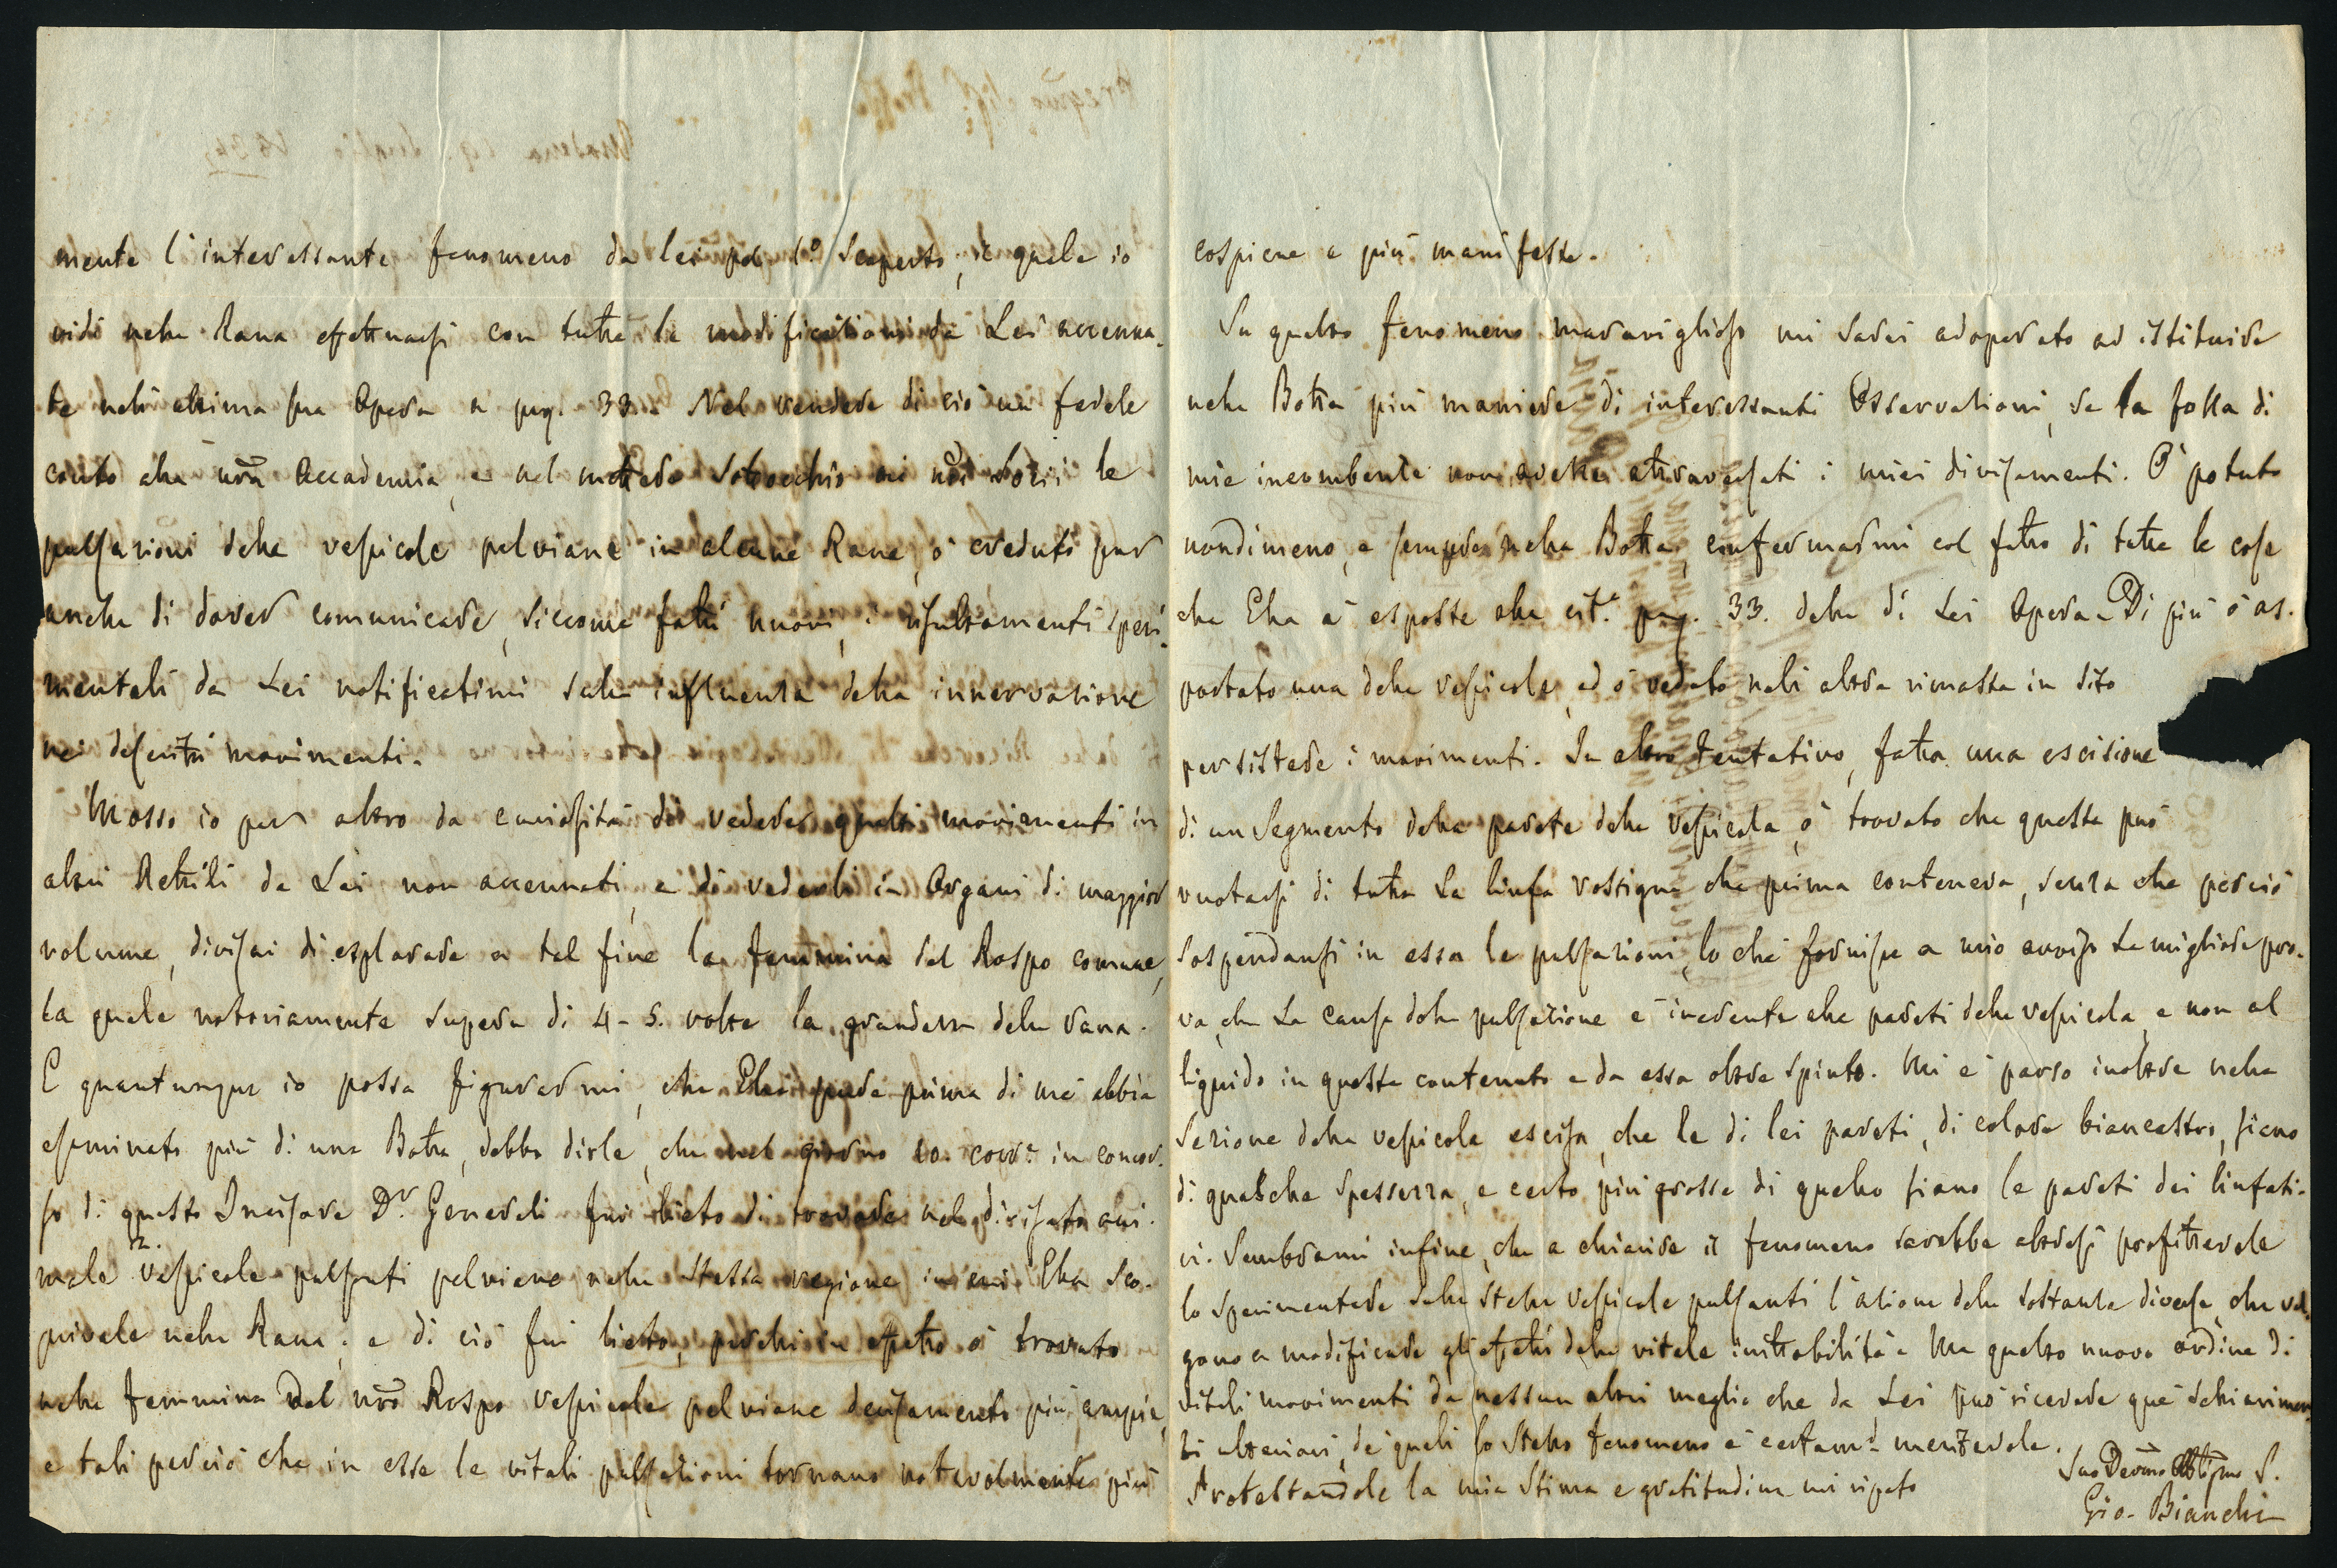 mente l'interessante fenomeno da lei pel 1.o scoperto, il quale io
vidi nella Rana effettuarsi con tutte le modificazioni da Lei accenna-
te nell'ultima sua Opera a pag. 33. Nel rendere di ciò un fedele
conto alla nr̃a Accademia, e nel mettere sottocchio ai nr̃i socii le
pulsazioni delle vescicole pelviane in alcune Rane, ò creduto pur
anche di dover comunicare, siccome fatti nuovi, i risultamenti speri-
mentali da Lei notificatimi sulla influenza della innervazione
nei descritti movimenti.
Mosso io per altro da curiosità di vedere questi movimenti in
altri Rettili da Lei non accennati, e di vederli in Organi di maggior
volume, divisai di esplorare a tal fine la femmina del Rospo comune,
la quale notoriamente supera di 4-5. volte la grandezza della rana.
E quantunque io possa figurarmi, che Ella pure prima di me abbia
esaminato più di una Botta, debbo dirle, che nel giorno 10. corr.e in concor-
so di questo Incisore D.r Generali fui lieto di trovare nel divisato ani-
male 2. vescicole pulsanti pelviane nella stessa regione in cui Ella sco-
privale nella Rana; e di ciò fui lieto, perchè in effetto ò trovato
nella femmina del nr̃o Rospo vescicole pelviane decisamente più ampie,
e tali perciò che in esse le vitali pulsazioni tornano notevolmente più
cospicue e più manifeste.
Su questo fenomeno maraviglioso mi sarei adoperato ad istituire
nella Botta più maniere di interessanti Osservazioni, se la folla di
mie incumbenze non avesse attraversati i miei divisamenti. Ò potuto
nondimeno, e sempre nella Botta, confermarmi col fatto di tutte le cose
che Ella à esposte alla cit.a pag. 33. della di Lei Opera. Di più ò as-
portato una delle vescicole, ed ò veduto nell'altra rimasta in sito
persistere i movimenti. In altro tentativo, fatta una escisione
di un segmento della parete della vescicola, ò trovato che questa può
vuotarsi di tutta la linfa rossigna che prima conteneva, senza che perciò
sospendansi in essa le pulsazioni, lo che fornisce a mio avviso la migliore pro-
va, che la causa della pulsazione è inerente alle pareti della vescicola, e non al
liquido in questa contenuto e da essa oltre spinto. Mi è parso inoltre nella
sezione della vescicola escisa, che le di lei pareti, di colore biancastro, sieno
di qualche spessezza, e certo più grosse di quello siano le pareti dei linfati-
ci. Sembrami infine, che a chiarire il fenomeno sarebbe altresì profittevole
lo sperimentare sulle stesse vescicole pulsanti l'azione delle sostanze diverse, che val-
gono a modificare gli effetti della vitale irritabilità. Ma questo nuovo ordine di
vitali movimenti da nessun altri meglio che da Lei può ricevere que' schiarimen-
ti ulteriori, de' quali lo stesso fenomeno è certam.e meritevole.
Protestandole la mia stima e gratitudine mi ripeto
Suo Devmo Obblgmo S.
Gio. Bianchi